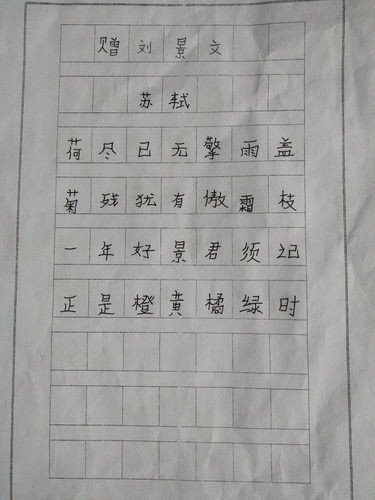 赠刘景文
苏轼
荷尽已无擎雨盖
菊残犹有傲霜枝
一年好景君须记
正是橙黄橘绿时